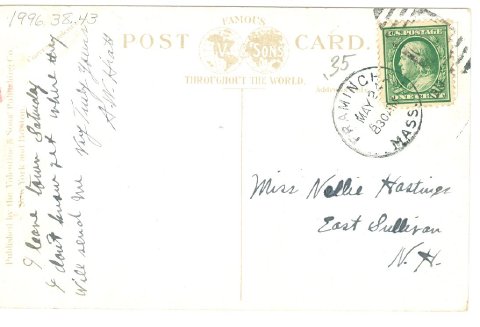 1996.38.43
FAMOUS
POST CARD.
V. & SONS
THROUGHOUT THE WORLD.
.35
U.S. POSTAGE
ONE CENT
FRAMINGHAM
MAY 2
830A
MASS.
Published by the Valentine & Sons' Publishing Co.
New York and Boston
I leave town Saturday
& don't know yet where they
will send me
Very Truly Yours
Miss Nellie Hastings
East Sullivan
N.H.